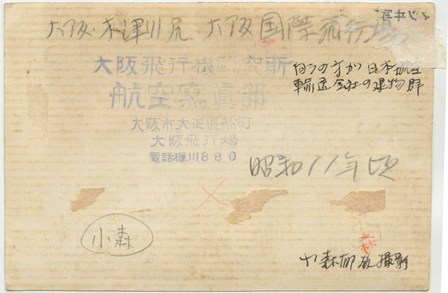 大阪・木津川尻 大阪国際飛行場
大阪飛行機
航空寫眞部
大阪市大正区船町
大阪飛行場
電話櫻川880
向うの方が日本航空
輸送会社の建物群
昭和11年頃
小森
小森郁雄撮影